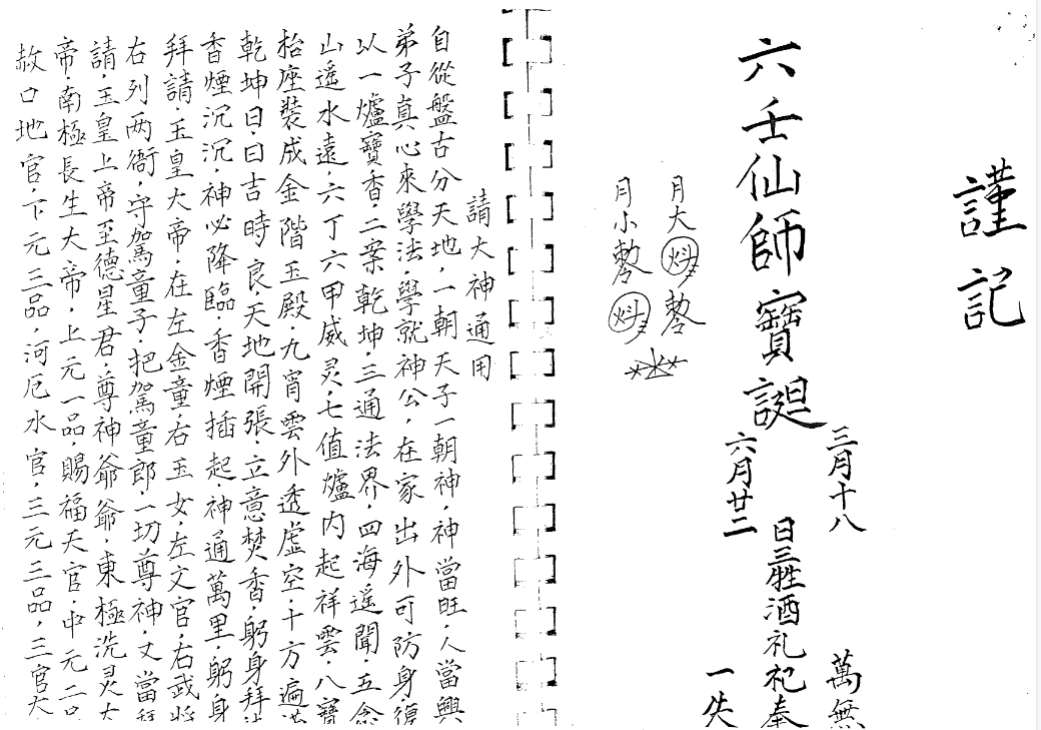 謹記
六壬仙師寶誕
三月十八
六月廿二
日三牲酒礼祀奉
萬無
一失
月大
月小
請大神通用
自從盤古分天地，一朝天子一朝神，神當旺，人當興
弟子真心來學法，學就神公，在家出外可防身，復
以一爐寶香，二案乾坤，三通法界，四海遥聞，五念
山遥水遠，六丁六甲威灵，七值爐内起祥雲，八寶
抬座裝成金階玉殿，九宵雲外透虚空，十方遍滿
乾坤日，曰吉時良，天地開張，立意焚香，躬身拜
香煙沉沉，神必降臨，香煙插起，神通萬里，躬身
拜請，玉皇大帝，在左金童，右玉女，左文官，右武將
右列两衙，守駕童子，把駕童郎，一切尊神，文當拜
請，玉皇上帝至德星君，尊神爺爺，東極洗灵大
帝，南極長生大帝，上元一品，賜福天官，中元二品
赦口地官，下元三品，河厄水官，三元三品，三官大